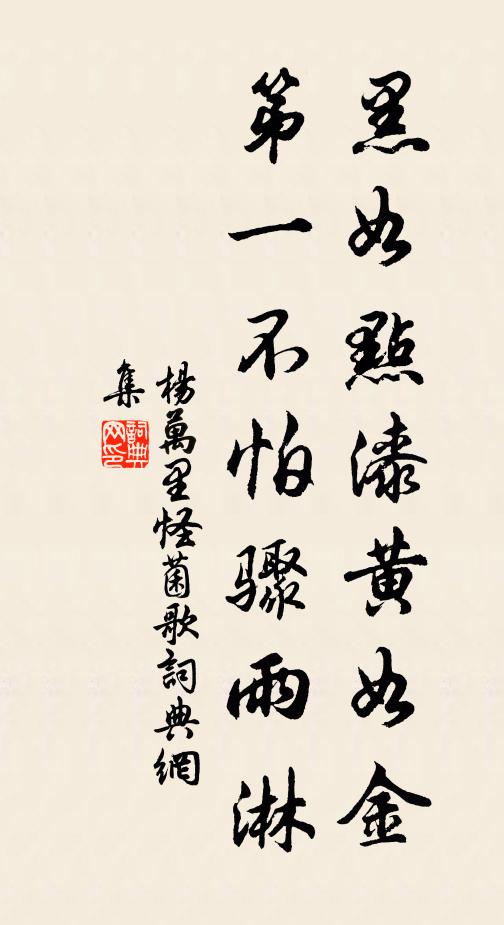 黑如點漆黄如金
第一不怕驟雨淋
楊萬里怪菌歌詞典網
集
詞典
网印